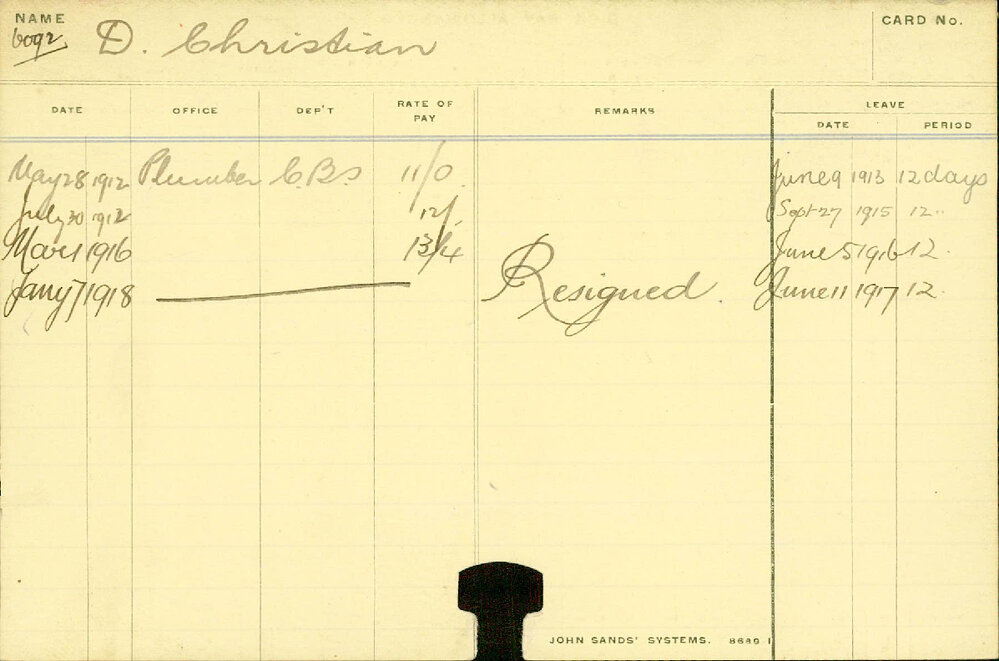 NAME D. Christian CARD No.
6092
DATE OFFICE DEP'T RATE OF PAY REMARKS LEAVE
DATE PERIOD
May 28 1912 Plumber C.B.S 11/0 June 9 1913 12 days
July 30 1912 12/. Sept 27 1915 12 ..
Mar 1 1916 13/4 June 5 1916 12.
Jany 7 1918 Resigned. June 11 1917 12.
JOHN SANDS' SYSTEMS. 8689 1